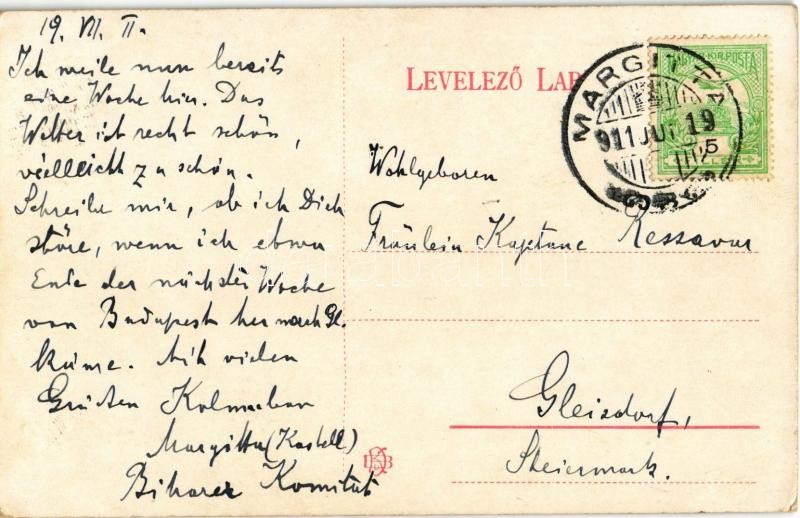 19. VII. 11.
Ich weile nun bereits
eine Woche hier. Das
Wetter ist recht schön,
vielleicht zu schön.
Schreibe mir, ob ich Dich
störe, wenn ich etwa
Ende der nächsten Woche
von Budapest her nach Gl.
käme. Mit vielen
Grüßen
Margitta (Kastell)
Biharer Komitat
LEVELEZŐ LAP
MARGITTA
911 JUL 19
5
Wohlgeboren
Fräulein
Gleisdorf,
Steiermark.